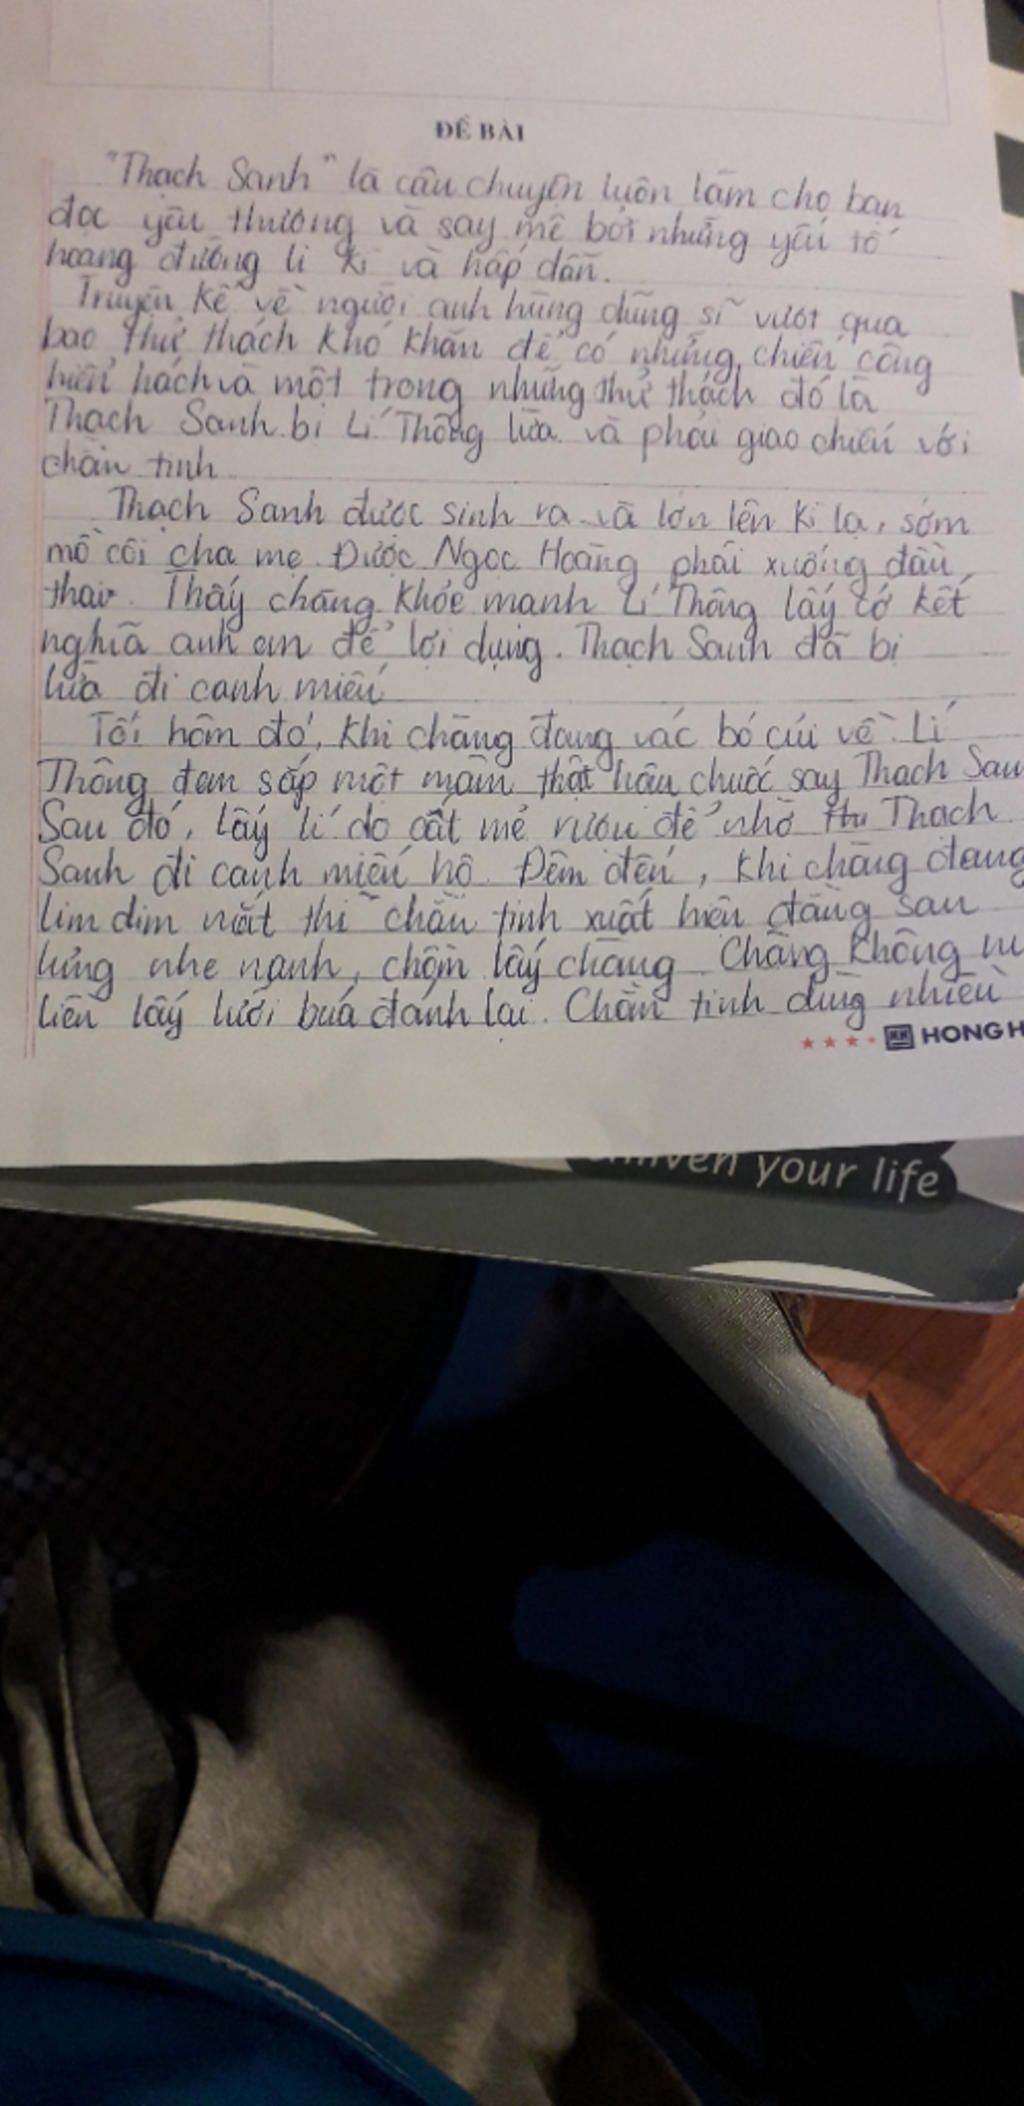 ĐỀ BÀI
"Thạch Sanh" là câu chuyện luôn làm cho bạn
đọc yêu thương và say mê bởi những yếu tố
hoang đường li kì và hấp dẫn.
Truyện kể về người anh hùng dũng sĩ vượt qua
bao thử thách khó khăn để có những chiến công
hiển hách và một trong những thử thách đó là
Thạch Sanh bị Lí Thông lừa và phải giao chiến với
chằn tinh
Thạch Sanh được sinh ra và lớn lên kì lạ, sớm
mồ côi cha mẹ. Được Ngọc Hoàng phái xuống đầu
thai. Thấy chàng khỏe mạnh Lí Thông lấy cớ kết
nghĩa anh em để lợi dụng. Thạch Sanh đã bị
lừa đi canh miếu
Tối hôm đó, khi chàng đang vác bó củi về. Lí
Thông đem sắp một mâm thật hậu chuốc say Thạch San
Sau đó, lấy lí do cất mẻ rượu để nhờ Thạch
Sanh đi canh miếu hộ. Đêm đến, khi chàng đang
lim dim mắt thì chằn tinh xuất hiện đằng sau
lưng nhe nanh, chồm lấy chàng. Chàng không
liền lấy lưới búa đánh lại. Chằn tinh dùng nhiều
HONG H
your life